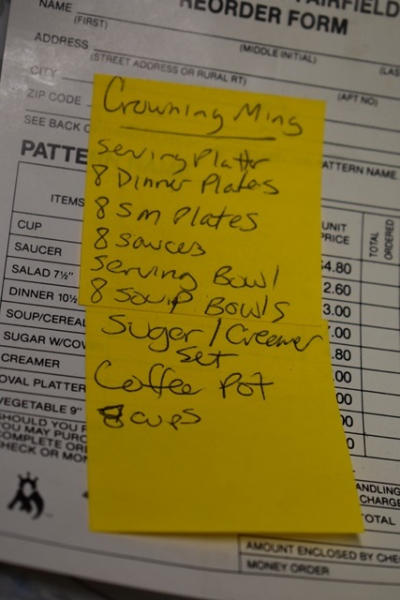 FAIRFIELD
REORDER FORM
NAME
(FIRST) (MIDDLE INITIAL) (LAS
ADDRESS
(STREET ADDRESS OR RURAL RT) (APT NO)
CITY
ZIP CODE
SEE BACK
Crowning Ming
PATTE
ATTERN NAME
Serving Platter
8 Dinner Plates
8 Sm Plates
8 Sauces
Serving Bowl
8 Soup Bowls
Sugar/Creamer
Set
Coffee Pot
8 cups
ITEMS UNIT PRICE TOTAL ORDERED
CUP 4.80
SAUCER 2.60
SALAD 7½" 3.00
DINNER 10½ .00
SOUP/CEREAL .80
SUGAR W/COV .00
CREAMER .00
OVAL PLATTER 00
VEGETABLE 9" 0
SHOULD YOU
YOU MAY PURC
COMPLETE OR
CHECK OR MO
ANDLING
CHARGE
OTAL
AMOUNT ENCLOSED BY CHE
MONEY ORDER